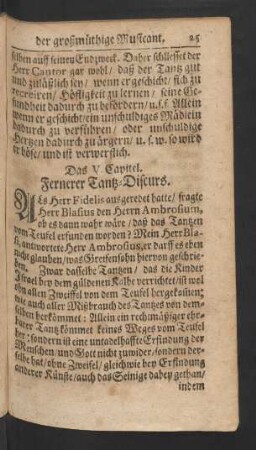 der großmüthige Musicant. 25
selben auff seinen Endzweck. Daher schliesset der
Herr Cantor gar wohl / daß der Tantz gut
und zuläßlich sey / wenn er geschicht / sich zu
recreiren / Höffligkeit zu lernen / seine Ge-
sundheit dadurch zu befördern / u. s. f. Allein
wenn er geschicht / ein unschuldiges Mädlein
dadurch zu verführen / oder unschuldige
Hertzen dadurch zu ärgern / u. s. w. so wird
er böse / und ist verwerflich.
Das V. Capitel.
Fernerer Tantz-Discurs.
ALs Herr Fidelis ausgeredet hatte / fragte
Herr Blasius den Herrn Ambrosium,
ob es dann wahr wäre / daß das Tantzen
vom Teufel erfunden worden? Mein Herr Bla-
si, antwortete Herr Ambrosius, er darff es eben
nicht glauben / was Greifensohn hiervon geschrie-
ben. Zwar dasselbe Tantzen / das die Kinder
Israel bey dem güldenen Kalbe verrichtet / ist wol
ohn allen Zweiffel von dem Teufel hergekommen /
wie auch aller Mißbrauch des Tantzes von dem-
selben herkömmet: Allein ein rechtmäßiger ehr-
barer Tantz kommet keines Weges vom Teufel
her: sondern ist eine untadelhaffte Erfindung der
Menschen / und Gott nicht zuwider / sondern der-
selbe hat / ohne Zweifel / gleichwie bey Erfindung
anderer Künste / auch das Seinige dabey gethan /
indem